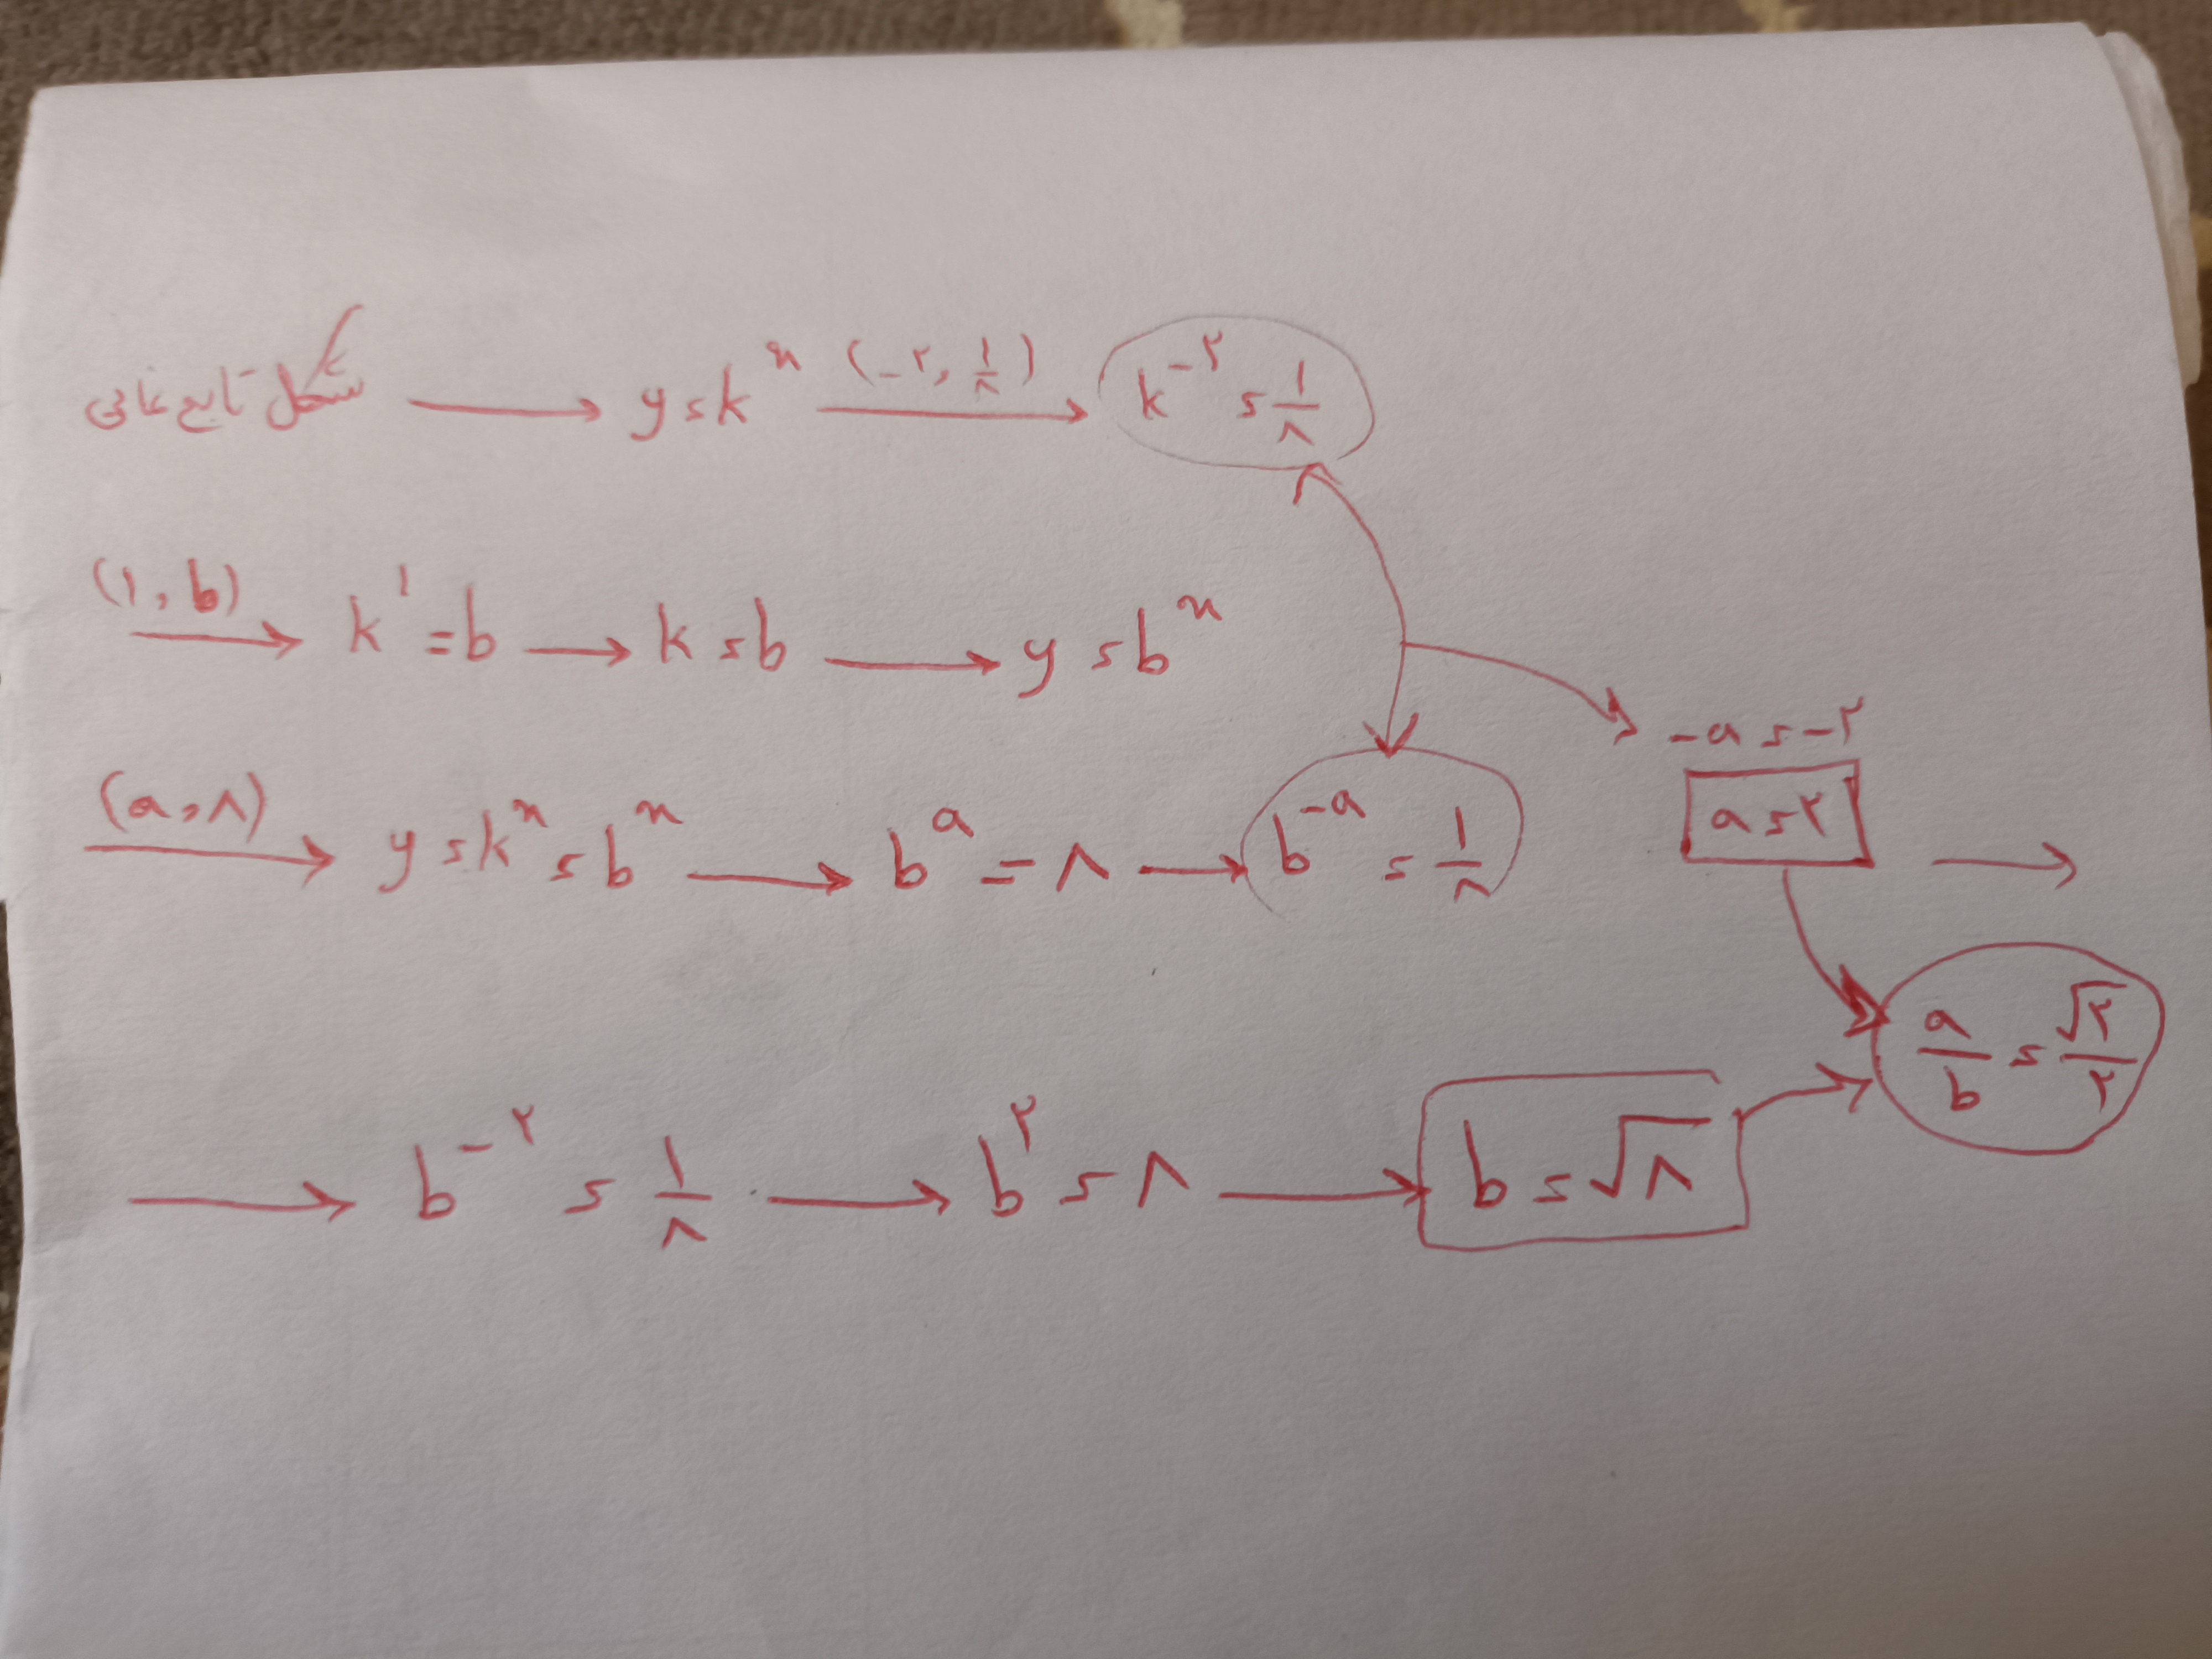 شکل تابع نمائی → y = k^x (-۲, ۱/۸) → k^-۲ = ۱/۸
(۱, b) → k^۱ = b → k = b → y = b^x
-a = -۲
(a, ۸) → y = k^x = b^x → b^a = ۸ → b^-a = ۱/۸
a = ۲ →
a/b = √۲/۲
→ b^-۲ = ۱/۸ → b^۲ = ۸ → b = √۸